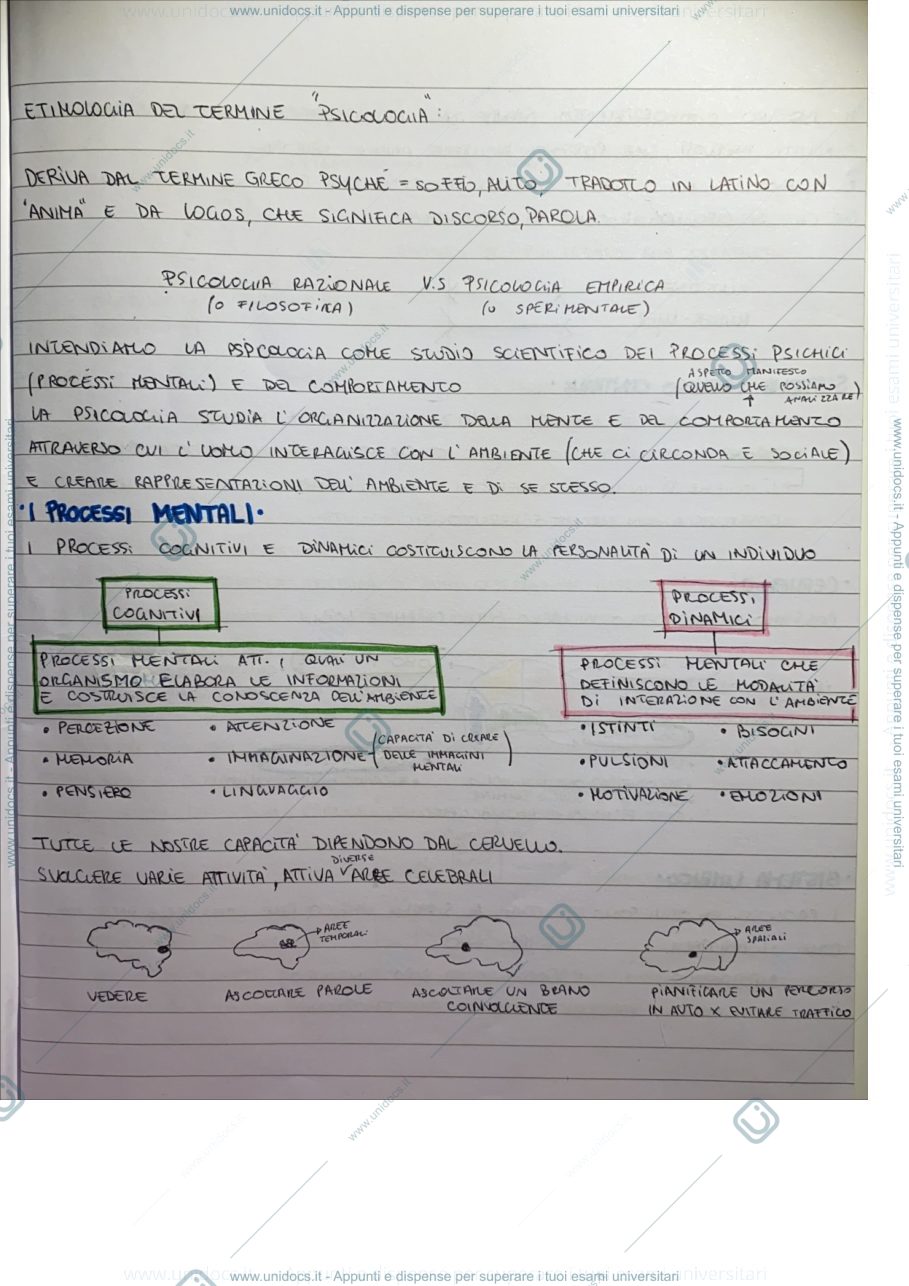 www.unidocs.it - Appunti e dispense per superare i tuoi esami universitari
ETIMOLOGIA DEL TERMINE "PSICOLOGIA":
DERIVA DAL TERMINE GRECO PSYCHÉ = SOFFIO, ALITO, TRADOTTO IN LATINO CON
"ANIMA" E DA LOGOS, CHE SIGNIFICA DISCORSO, PAROLA.
PSICOLOGIA RAZIONALE V.S PSICOLOGIA EMPIRICA
(O FILOSOFICA) (O SPERIMENTALE)
INTENDIAMO LA PSPCOLOGIA COME STUDIO SCIENTIFICO DEI PROCESSI PSICHICI
(PROCESSI MENTALI) E DEL COMPORTAMENTO
ASPETTO MANIFESTO
(QUELLO CHE POSSIAMO
ANALIZZARE)
LA PSICOLOGIA STUDIA L'ORGANIZZAZIONE DELLA MENTE E DEL COMPORTAMENTO
ATTRAVERSO CUI L'UOMO INTERAGISCE CON L'AMBIENTE (CHE CI CIRCONDA E SOCIALE)
E CREARE RAPPRESENTAZIONI DELL'AMBIENTE E DI SE STESSO.
·I PROCESSI MENTALI·
I PROCESSI COGNITIVI E DINAMICI COSTITUISCONO LA PERSONALITÀ DI UN INDIVIDUO
PROCESSI
COGNITIVI
PROCESSI MENTALI ATT. I QUALI UN
ORGANISMO ELABORA LE INFORMAZIONI
E COSTRUISCE LA CONOSCENZA DELL'AMBIENTE
• PERCEZIONE • ATTENZIONE
• MEMORIA • IMMAGINAZIONE (CAPACITÀ DI CREARE
DELLE IMMAGINI
MENTALI)
• PENSIERO • LINGUAGGIO
PROCESSI
DINAMICI
PROCESSI MENTALI CHE
DEFINISCONO LE MODALITÀ
DI INTERAZIONE CON L'AMBIENTE
• ISTINTI • BISOGNI
• PULSIONI • ATTACCAMENTO
• MOTIVAZIONE • EMOZIONI
TUTTE LE NOSTRE CAPACITÀ DIPENDONO DAL CERVELLO.
SVOLGERE VARIE ATTIVITÀ, ATTIVA DIVERSE AREE CELEBRALI
AREE
TEMPORALI
AREE
SPAZIALI
VEDERE
ASCOLTARE PAROLE
ASCOLTARE UN BRANO
COINVOLGENTE
PIANIFICARE UN PERCORSO
IN AUTO X EVITARE TRAFFICO
www.unidocs.it - Appunti e dispense per superare i tuoi esami universitari